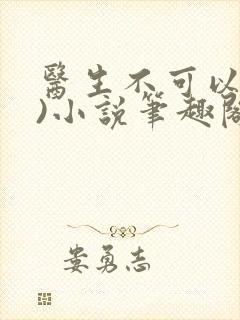 醫生不可以
)小說筆趣閣
娄勇志